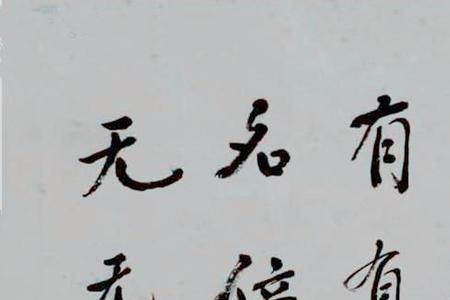 无名有
无有